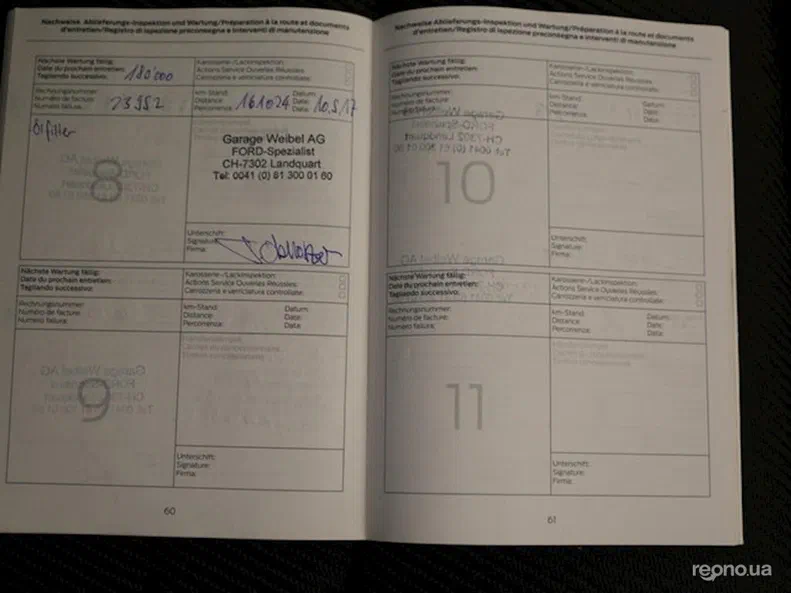 Nachweise Ablieferungs-Inspektion und Wartung/Préparation à la route et documents
d'entretien/Registro di ispezione preconsegna e interventi di manutenzione
Nächste Wartung fällig:
Date du prochain entretien:
Tagliando successivo:
180'000
Karosserie-/Lackinspektion:
Actions Service Ouvelles Réussies:
Carrozzeria e verniciatura controllate:
Rechnungsnummer:
Numéro de facture:
Numero fattura:
23952
km-Stand:
Distance:
Percorrenza:
161024
Datum:
Date:
Data:
10.5.17
Ölfilter
8
Garage Weibel AG
FORD-Spezialist
CH-7302 Landquart
Tel: 0041 (0) 81 300 01 60
Unterschrift:
Signature:
Firma:
Nächste Wartung fällig:
Date du prochain entretien:
Tagliando successivo:
Karosserie-/Lackinspektion:
Actions Service Ouvelles Réussies:
Carrozzeria e verniciatura controllate:
Rechnungsnummer:
Numéro de facture:
Numero fattura:
km-Stand:
Distance:
Percorrenza:
Datum:
Date:
Data:
9
Unterschrift:
Signature:
Firma:
60
Nachweise Ablieferungs-Inspektion und Wartung/Préparation à la route et documents
d'entretien/Registro di ispezione preconsegna e interventi di manutenzione
Nächste Wartung fällig:
Date du prochain entretien:
Tagliando successivo:
Karosserie-/Lackinspektion:
Actions Service Ouvelles Réussies:
Carrozzeria e verniciatura controllate:
Rechnungsnummer:
Numéro de facture:
Numero fattura:
km-Stand:
Distance:
Percorrenza:
Datum:
Date:
Data:
10
Unterschrift:
Signature:
Firma:
Nächste Wartung fällig:
Date du prochain entretien:
Tagliando successivo:
Karosserie-/Lackinspektion:
Actions Service Ouvelles Réussies:
Carrozzeria e verniciatura controllate:
Rechnungsnummer:
Numéro de facture:
Numero fattura:
km-Stand:
Distance:
Percorrenza:
Datum:
Date:
Data:
11
Unterschrift:
Signature:
Firma:
61
repno.ua